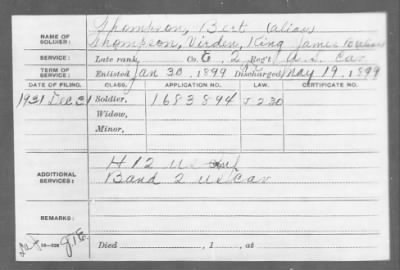 NAME OF SOLDIER: Thompson, Bert (alias)
Thompson, Virden, King James
SERVICE: Late rank, Co. E, 2 Reg't U.S. Cav
TERM OF SERVICE: Enlisted Jan 30, 1899 Discharged May 19, 1899
DATE OF FILING. CLASS. APPLICATION NO. LAW. CERTIFICATE NO.
1931 Dec 31 Soldier, 1683894
Widow,
Minor,
ADDITIONAL SERVICES: H 12 US Inf
Band 2 US Cav
REMARKS:
Died , 1 , at